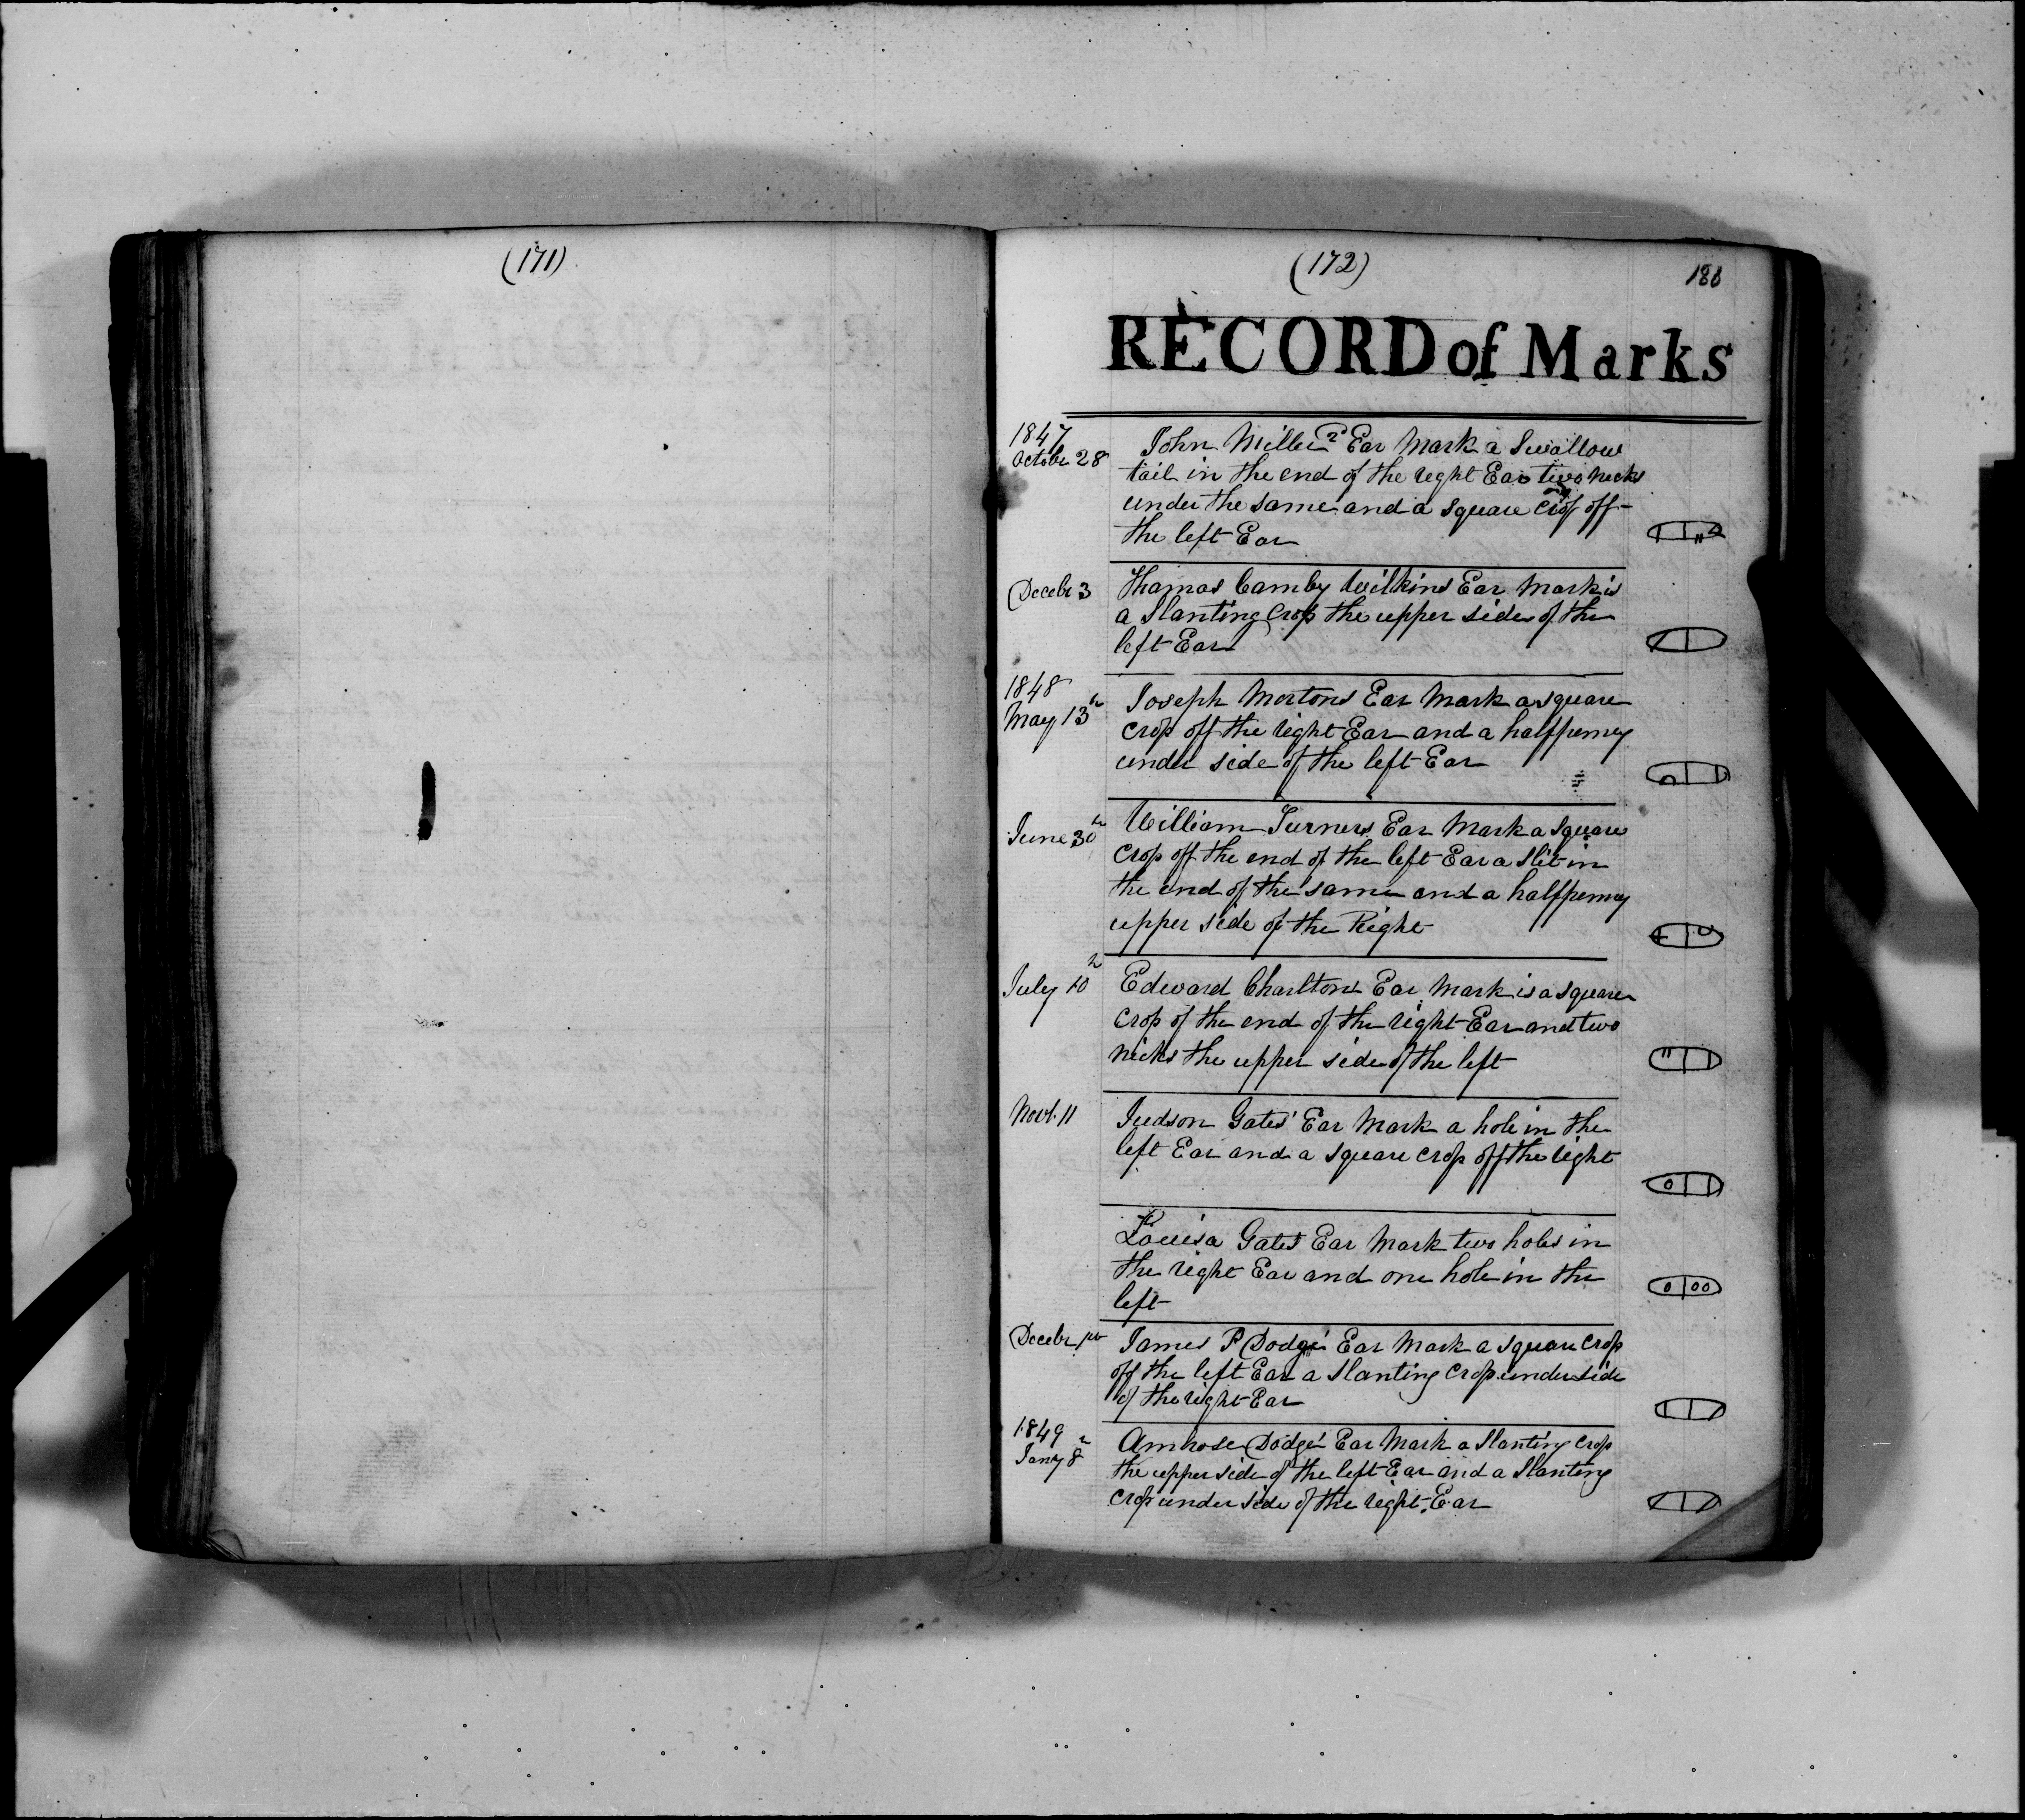 (171)
(172)
188
RECORD of Marks
1847
October 28
John Miller's Ear Mark a Swallow
tail in the end of the right Ear two nicks
under the same and a square crop off
the left Ear
Decebr 3
Thomas Camby Wilkins Ear Mark is
a Slanting Crop the upper side of the
left Ear
1848
May 13th
Joseph Mortons Ear Mark a square
crop off the right Ear and a halfpenny
under side of the left Ear
June 30th
William Turners Ear Mark a square
crop off the end of the left Ear a slit in
the end of the same and a halfpenny
upper side of the Right
July 10th
Edward Charltons Ear Mark is a square
crop of the end of the right Ear and two
nicks the upper side of the left
Novr 11
Judson Gates' Ear Mark a hole in the
left Ear and a square crop off the right
Louisa Gates Ear Mark two holes in
the right Ear and one hole in the
left
Decebr
James P Dodge's Ear Mark a square crop
off the left Ear a Slanting crop under side
of the right Ear
1849
Jany 8th
Ambrose Dodge's Ear Mark a Slanting crop
the upper side of the left Ear and a Slanting
crop under side of the right Ear